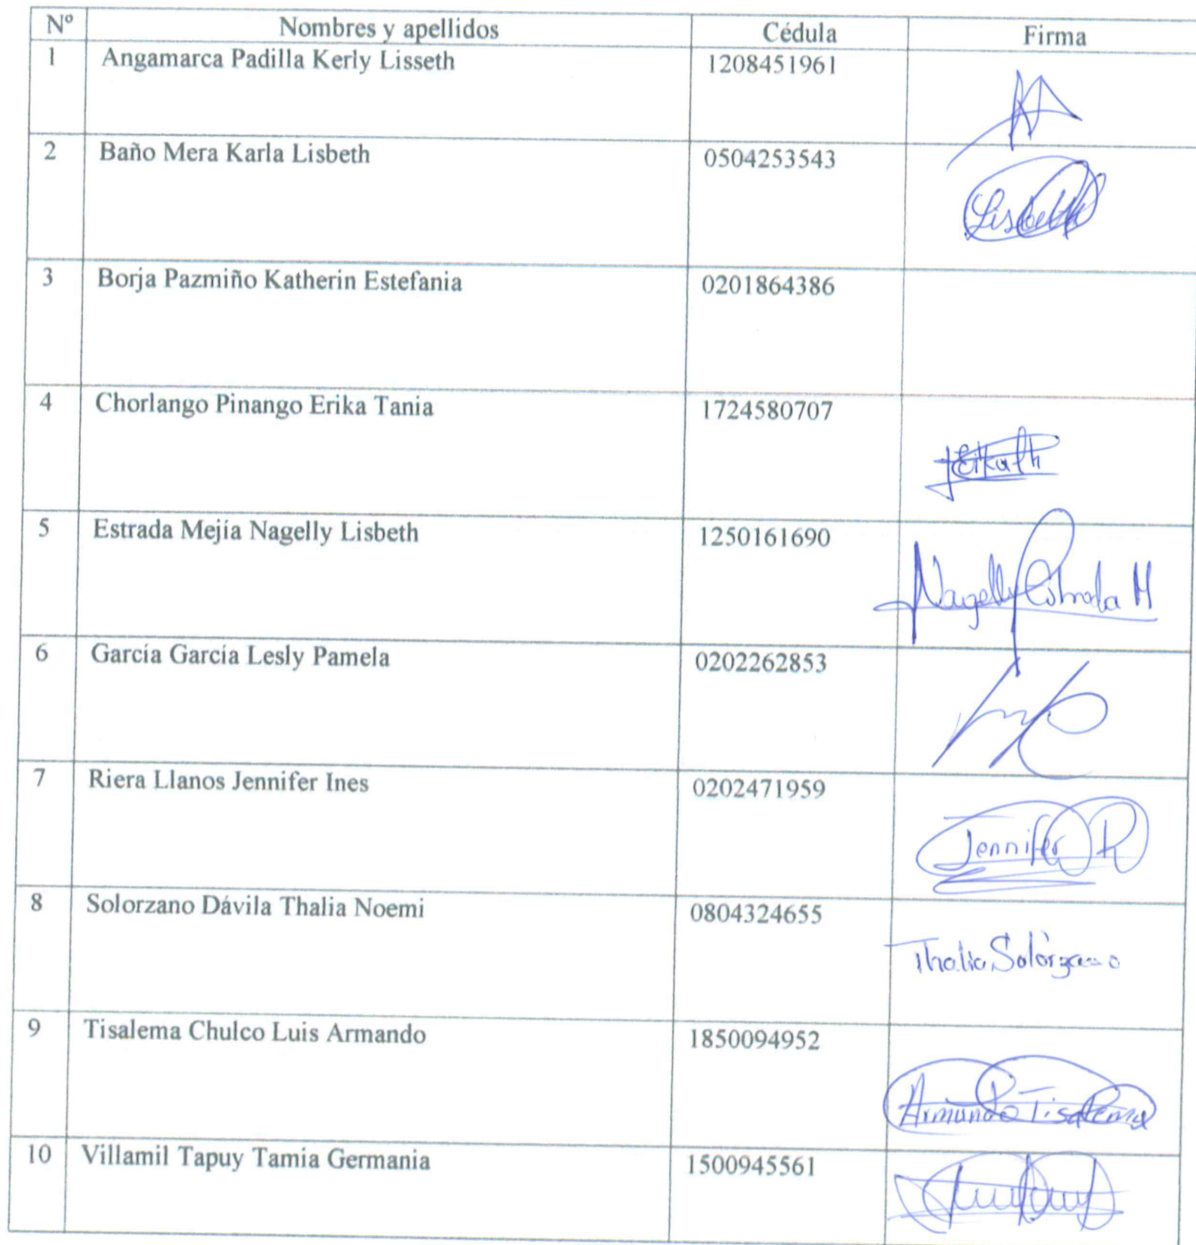 Nº Nombres y apellidos Cédula Firma
1 Angamarca Padilla Kerly Lisseth 1208451961
2 Baño Mera Karla Lisbeth 0504253543
Lisbeth
3 Borja Pazmiño Katherin Estefania 0201864386
4 Chorlango Pinango Erika Tania 1724580707
5 Estrada Mejía Nagelly Lisbeth 1250161690
Nagelly Estrada M
6 García García Lesly Pamela 0202262853
7 Riera Llanos Jennifer Ines 0202471959
Jennifer R
8 Solorzano Dávila Thalia Noemi 0804324655
Thalia Solórzano
9 Tisalema Chulco Luis Armando 1850094952
Armando Tisalema
10 Villamil Tapuy Tamia Germania 1500945561